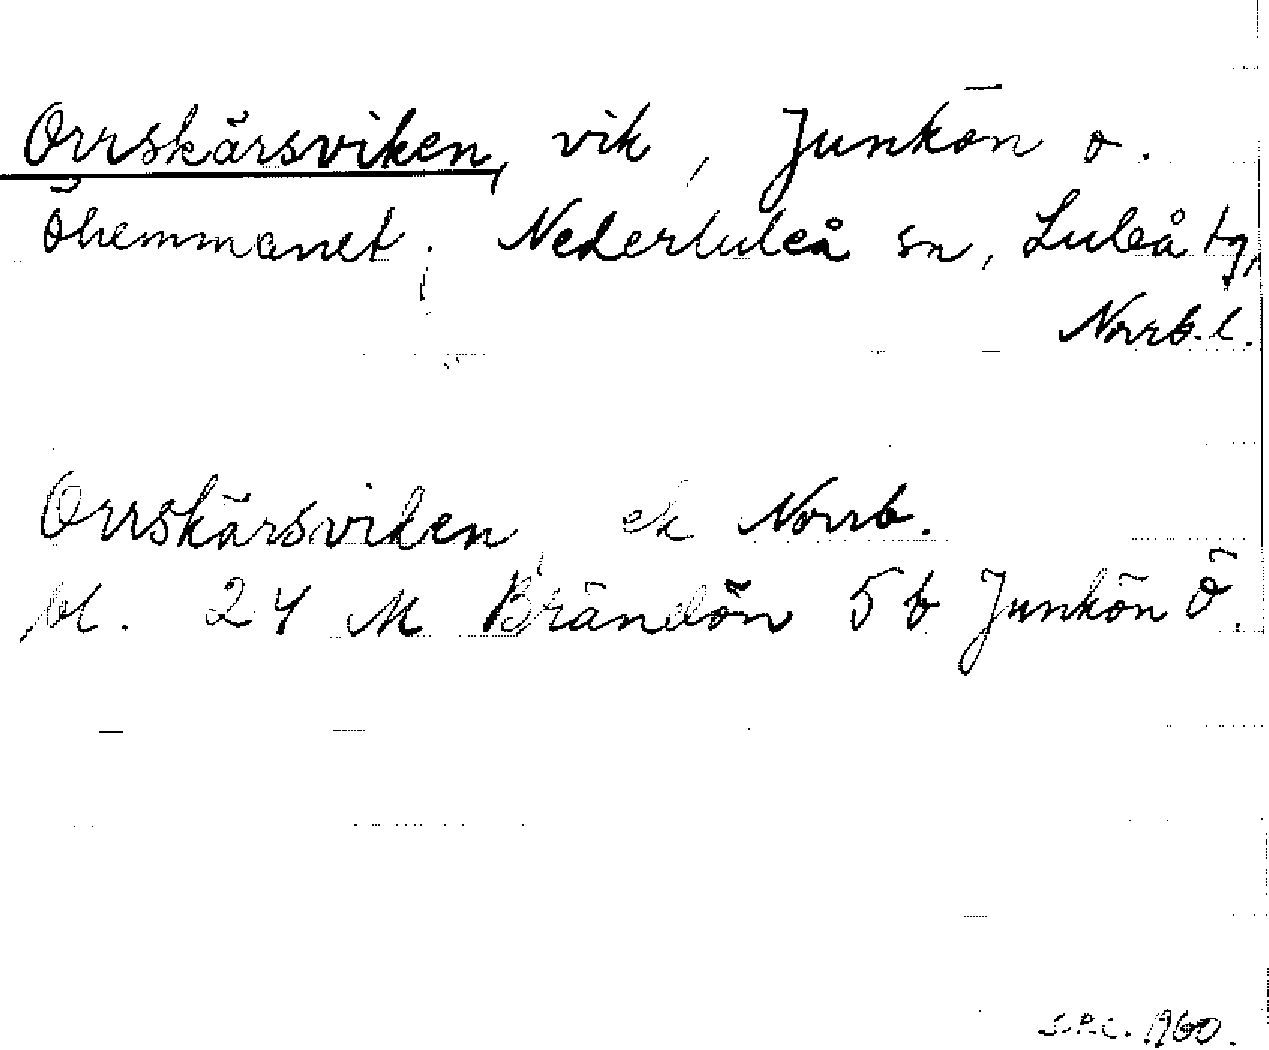 Orrskärsviken, vik, Junkön o.
Öhemmanet; Nederluleå sn, Luleå tg,
Norrb. l.
Orrskärsviken, ek Norrb.
bl. 24 M Brändön 5b Junkön Ö.
S.P.C. 1960.